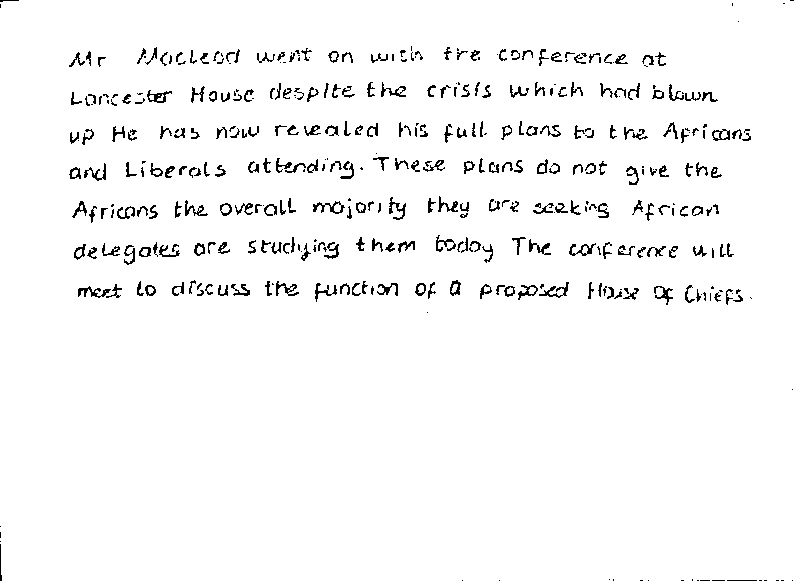 Mr Macleod went on with the conference at
Lancester House despite the crisis which had blown
up He has now revealed his full plans to the Africans
and Liberals attending. These plans do not give the
Africans the overall majority they are seeking African
delegates are studying them today The conference will
meet to discuss the function of a proposed House Of Chiefs.